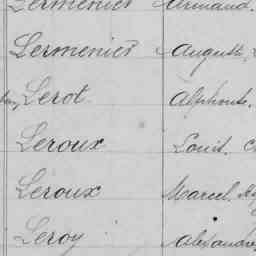 Lermenier Armand.
Lermenier Auguste,
Lerot Alphonse.
Leroux Louis. C
Leroux Marcel.
Leroy Alexandre